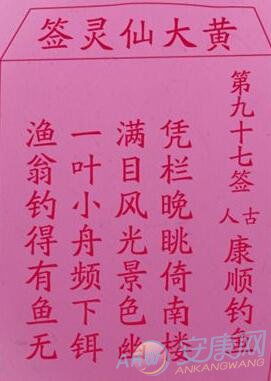 黄大仙灵签
第九十七签
古人
康顺钓鱼
凭栏晚眺倚南楼
满目风光景色幽
一叶小舟频下饵
渔翁钓得有鱼无
安康网
ANKANGWANG